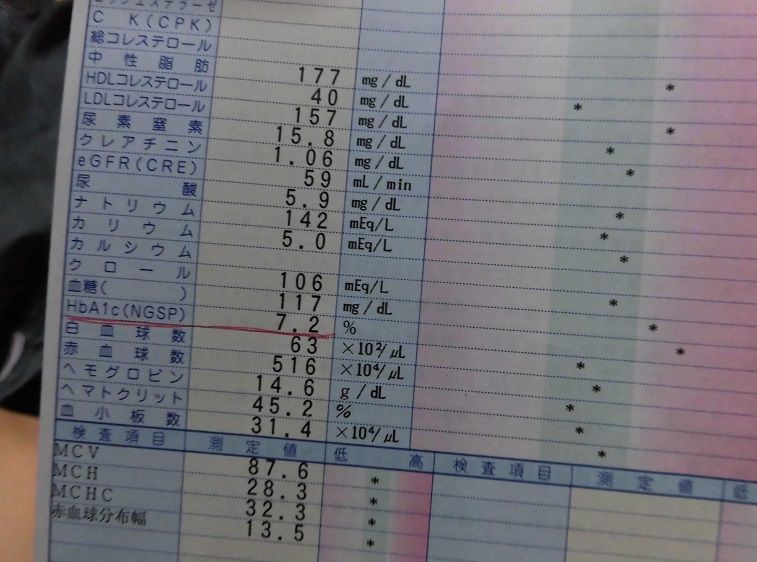 C K(CPK)
総コレステロール
中性脂肪 177 mg/dL *
HDLコレステロール 40 mg/dL *
LDLコレステロール 157 mg/dL *
尿素窒素 15.8 mg/dL *
クレアチニン 1.06 mg/dL *
eGFR(CRE) 59 mL/min
尿酸 5.9 mg/dL *
ナトリウム 142 mEq/L *
カリウム 5.0 mEq/L *
カルシウム
クロール 106 mEq/L *
血糖( ) 117 mg/dL *
HbA1c(NGSP) 7.2 % *
白血球数 63 ×10²/μL *
赤血球数 516 ×10⁴/μL *
ヘモグロビン 14.6 g/dL *
ヘマトクリット 45.2 % *
血小板数 31.4 ×10⁴/μL *
検査項目 測定値 低 高 検査項目 測定値 低
MCV 87.6 *
MCH 28.3 *
MCHC 32.3 *
赤血球分布幅 13.5 *